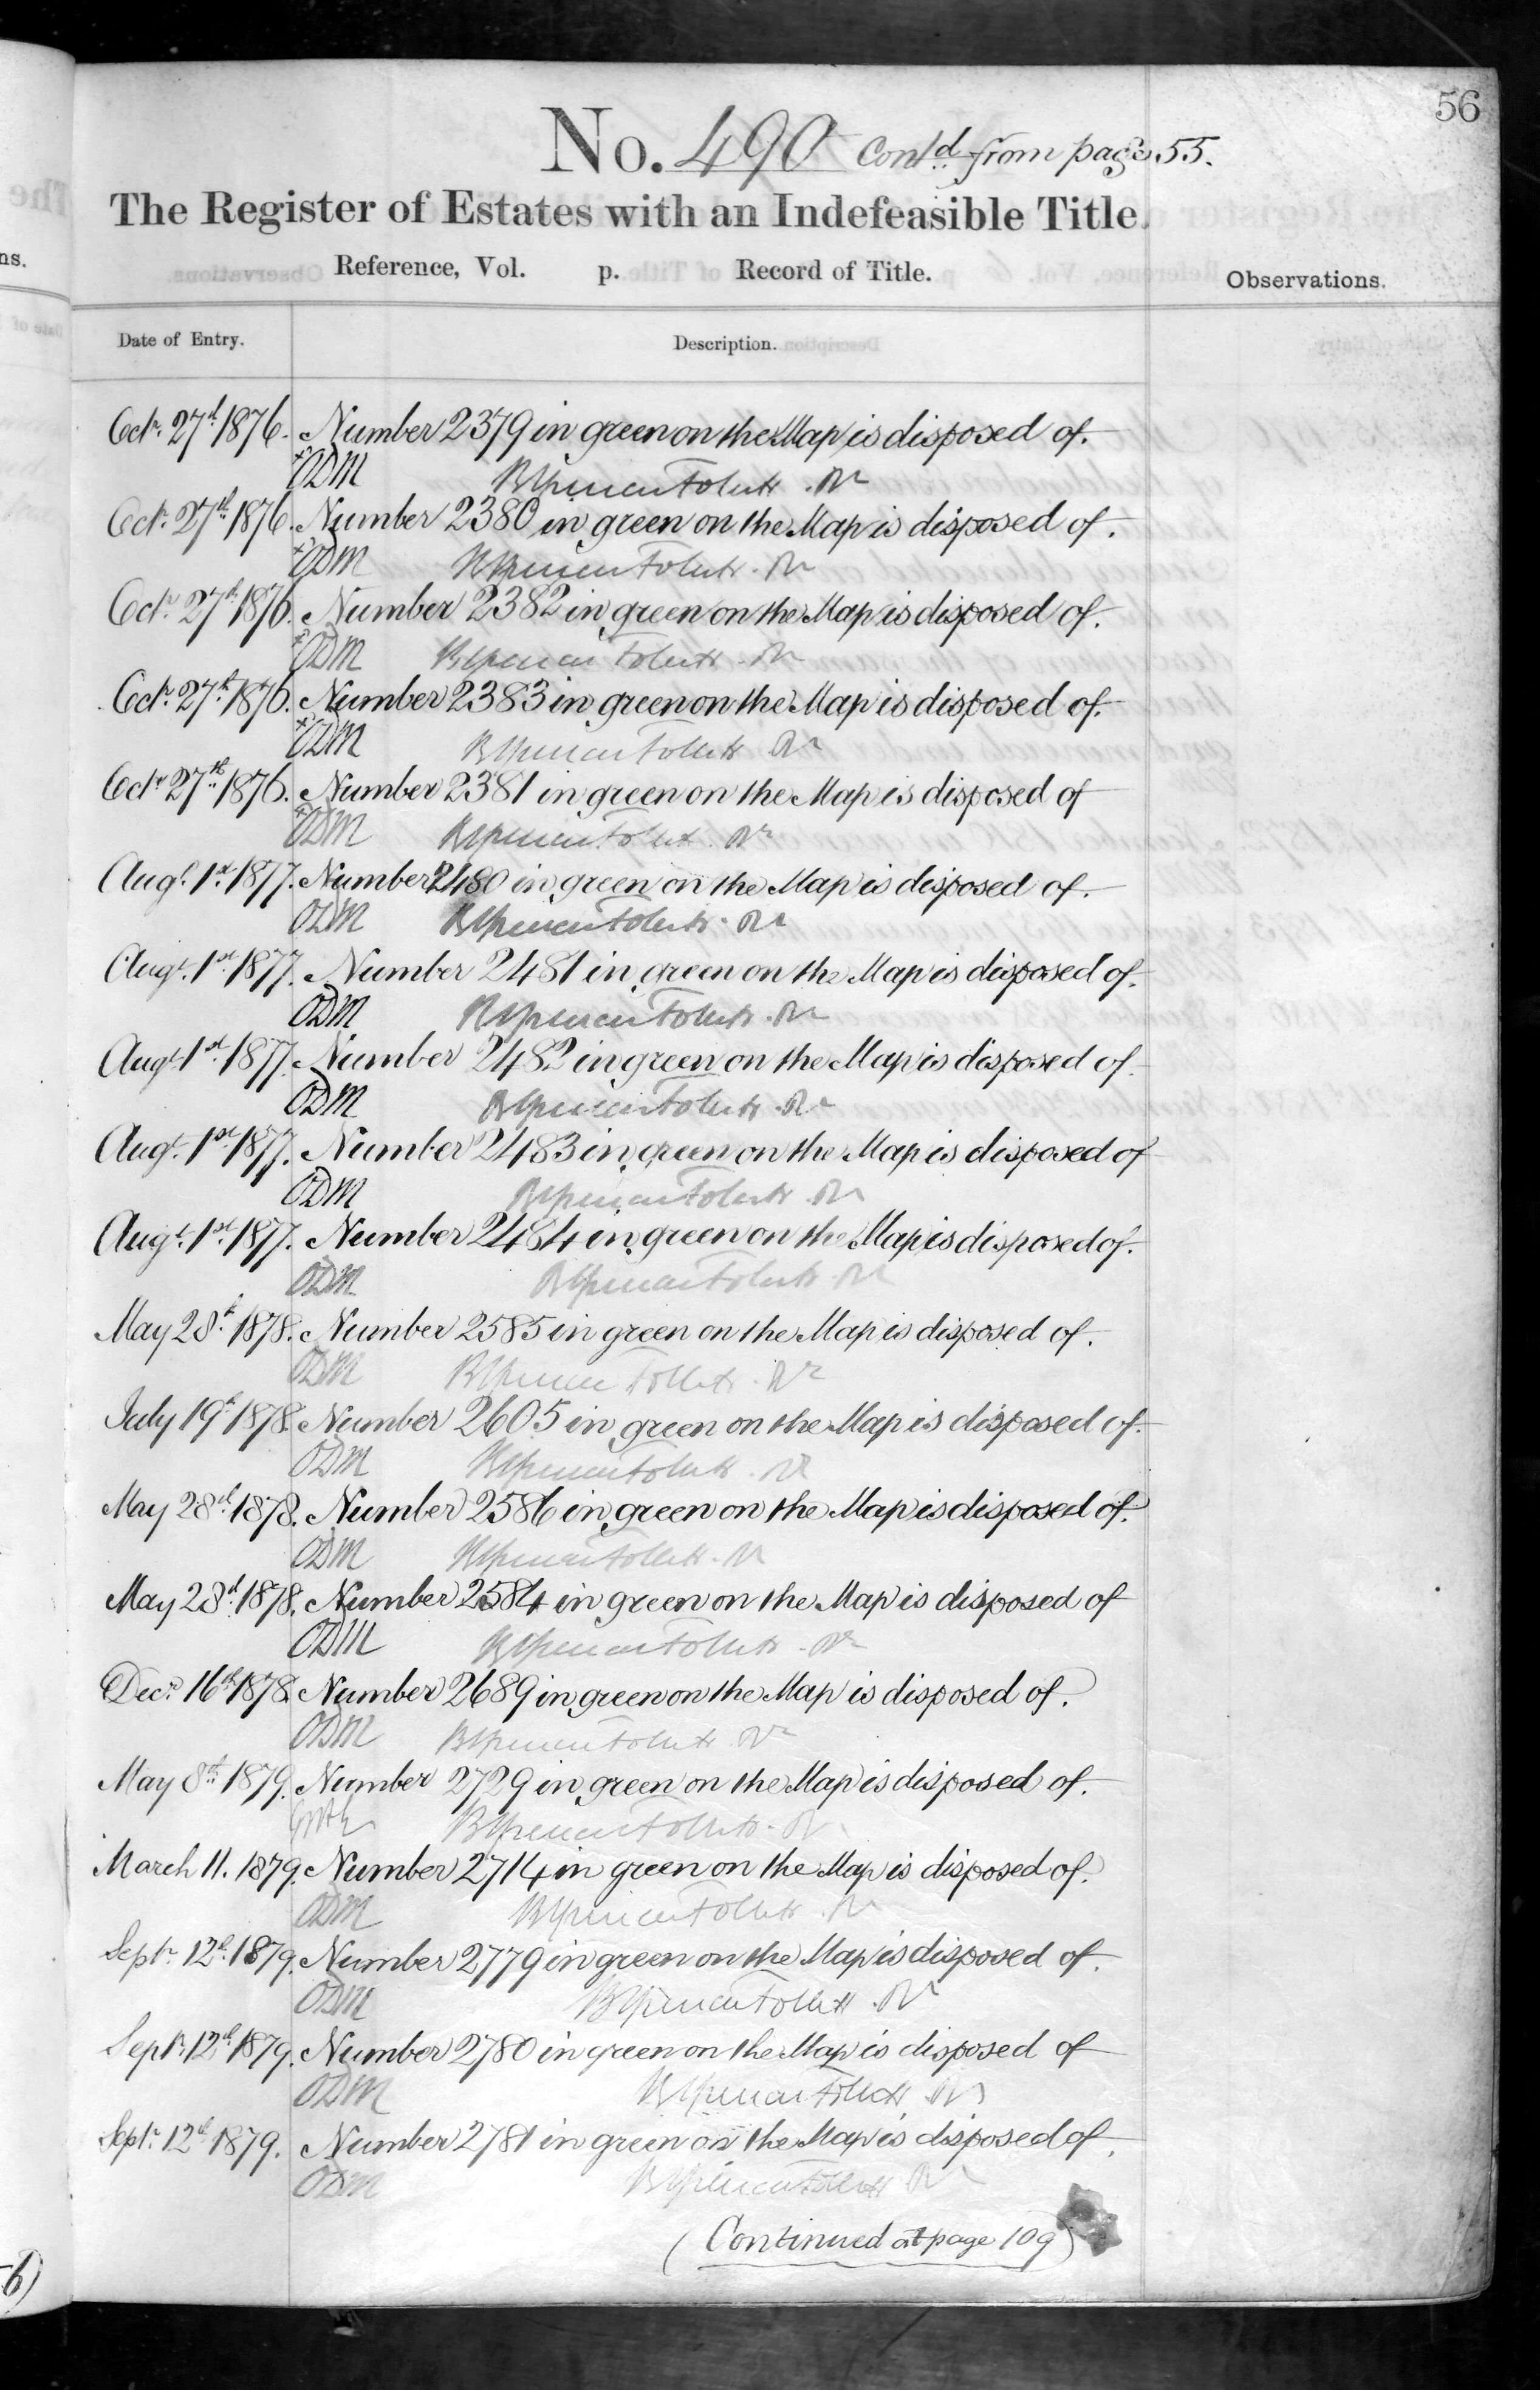 56
No. 490 Contd. from page 55.
The Register of Estates with an Indefeasible Title.
Reference, Vol. p. Record of Title.
Observations.
Date of Entry. Description.
Octr. 27th 1876. Number 2379 in green on the Map is disposed of.
ODM
Octr. 27th 1876. Number 2380 in green on the Map is disposed of.
ODM
Octr. 27th 1876. Number 2382 in green on the Map is disposed of.
ODM
Octr. 27th 1876. Number 2383 in green on the Map is disposed of.
ODM
Octr. 27th 1876. Number 2381 in green on the Map is disposed of
ODM
Augt. 1st 1877. Number 2480 in green on the Map is disposed of.
ODM
Augt. 1st 1877. Number 2481 in green on the Map is disposed of.
ODM
Augt. 1st 1877. Number 2482 in green on the Map is disposed of.
ODM
Augt. 1st 1877. Number 2483 in green on the Map is disposed of
ODM
Augt. 1st 1877. Number 2484 in green on the Map is disposed of.
ODM
May 28th 1878. Number 2585 in green on the Map is disposed of.
ODM
July 19th 1878. Number 2605 in green on the Map is disposed of.
ODM
May 28th 1878. Number 2586 in green on the Map is disposed of.
ODM
May 28th 1878. Number 2584 in green on the Map is disposed of
ODM
Decr. 16th 1878. Number 2689 in green on the Map is disposed of.
ODM
May 8th 1879. Number 2729 in green on the Map is disposed of.
March 11. 1879. Number 2714 in green on the Map is disposed of.
ODM
Septr. 12th 1879. Number 2779 in green on the Map is disposed of.
ODM
Septr. 12th 1879. Number 2780 in green on the Map is disposed of
ODM
Septr. 12th 1879. Number 2781 in green on the Map is disposed of.
ODM
(Continued at page 109)